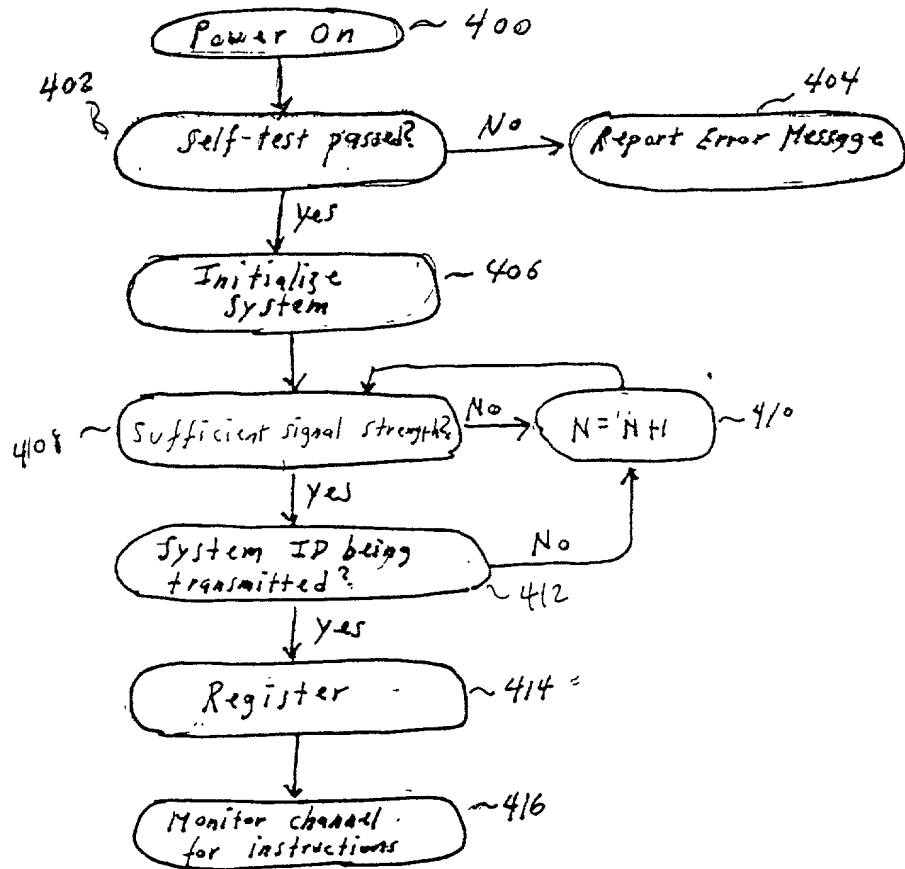 Power On
400
402
Self-test passed?
No
404
Report Error Message
yes
Initialize
System
406
408
Sufficient signal strength?
No
N = N+1
410
yes
System ID being
transmitted?
No
412
yes
Register
414
Monitor channel
for instructions
416